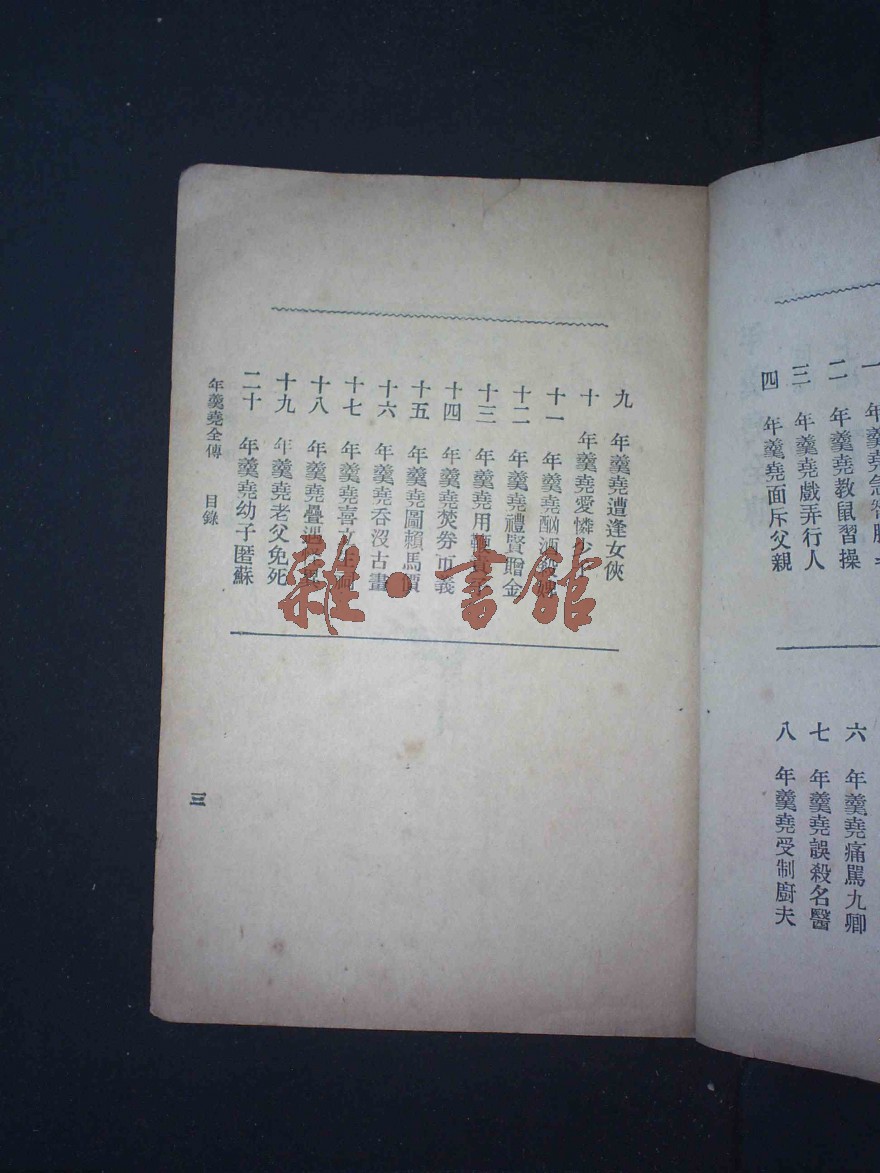 一 年羹堯急智
二 年羹堯教鼠習操
三 年羹堯戲弄行人
四 年羹堯面斥父親
六 年羹堯痛罵九卿
七 年羹堯誤殺名醫
八 年羹堯受制廚夫
九 年羹堯遭逢女俠
十 年羹堯愛憐
十一 年羹堯酗酒
十二 年羹堯禮賢贈金
十三 年羹堯用
十四 年羹堯焚券市義
十五 年羹堯圖賴馬價
十六 年羹堯吞沒古畫
十七 年羹堯喜立生祠
十八 年羹堯疊遇
十九 年羹堯老父免死
二十 年羹堯幼子匿蘇
年羹堯全傳 目錄
三
雜·書館